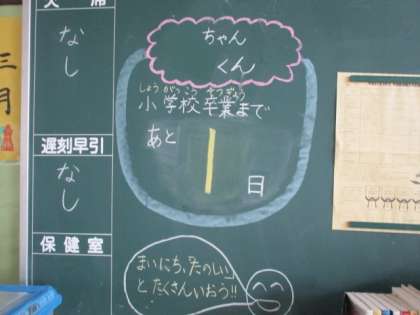 欠席
なし
遅刻早引
なし
保健室
三月
ちゃん
くん
しょうがっこう そつぎょう
小学校卒業まで
あと
1
日
まいにち、「たのしい」
とたくさんいおう!!